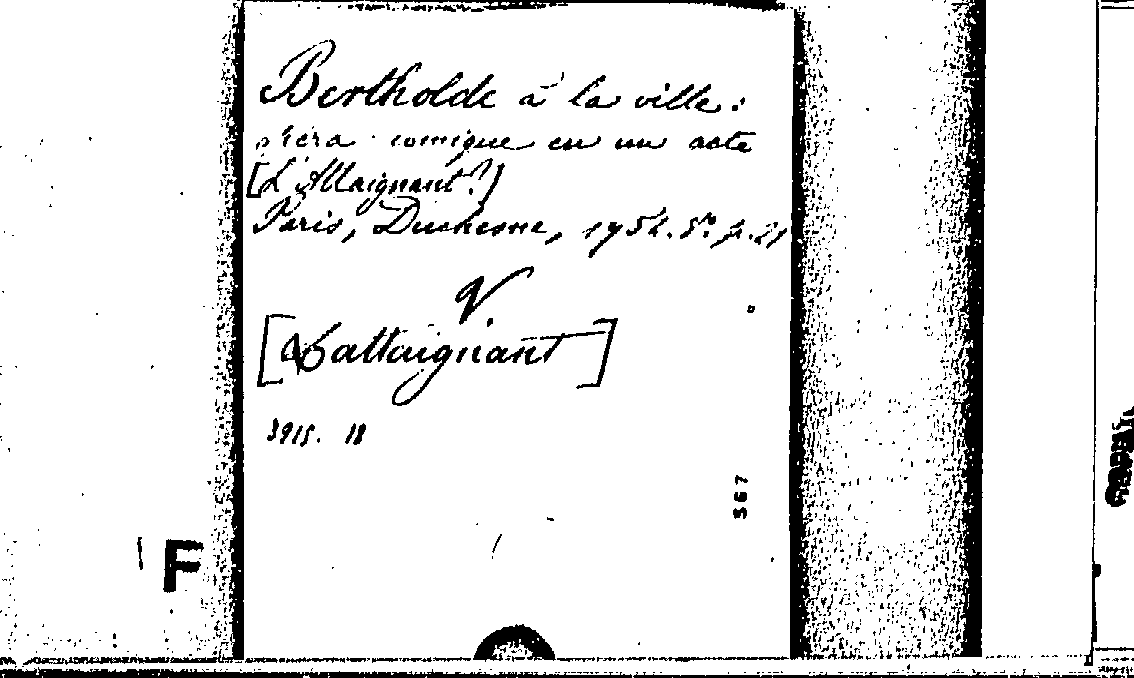 Bertholde à la ville:
opéra-comique en un acte
[L'Attaignant?]
Paris, Duchesne, 1754. 8º p.
V.
[Lattaignant]
3915. 18
567
F